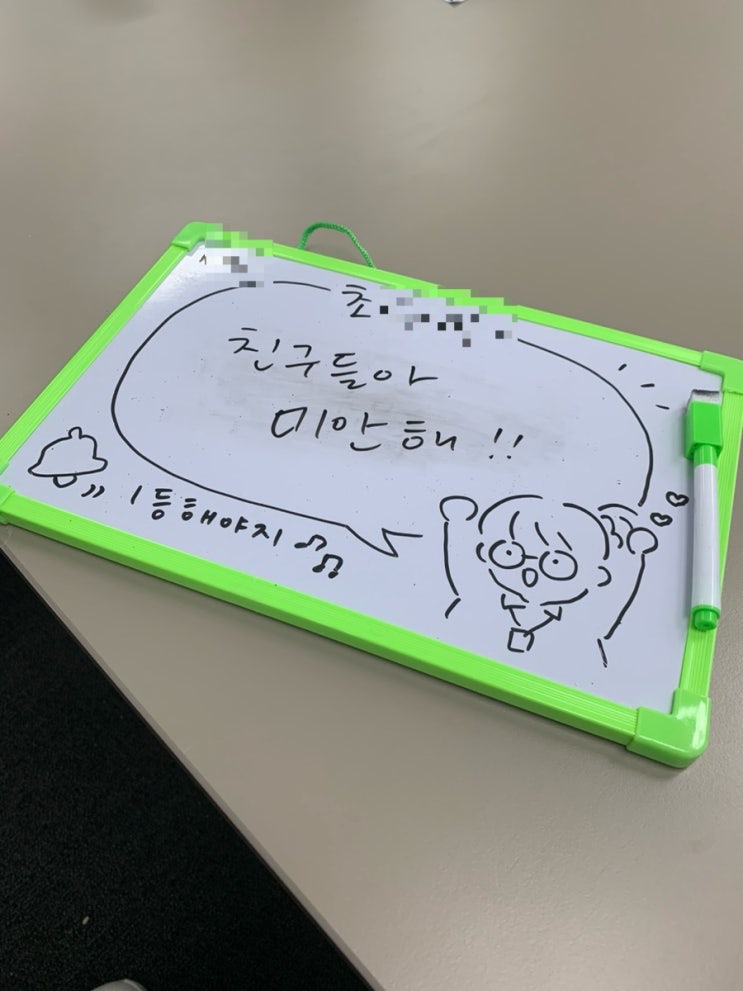 초
친구들아
미안해 !!
1등해야지